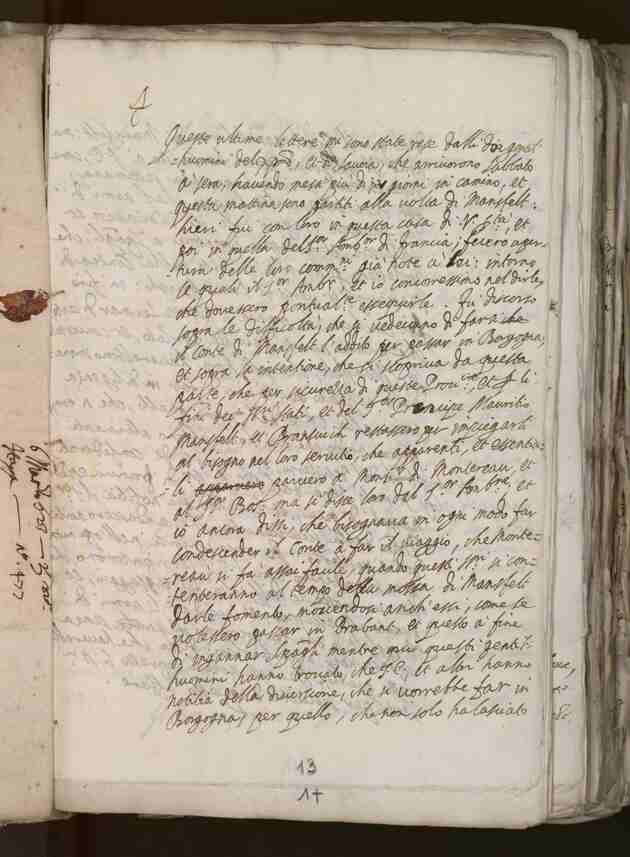 A
Queste ultime lettere mi sono state rese dalli doi gentil-
-huomini del , et di Savoia, che arrivorono Sabbato
à sera, havendo messa più di giorni in camino, et
questa mattina sono partiti alla volta di Mansfelt:
hieri fui con loro in questa casa di V. Stà, et
poi in quella del Sor Ambr di Francia; fecero aper-
tura delle loro commni già note a lei: intorno
le quali il Sor Ambr, et io concorressimo nel dirle,
che dovessero pontuale essequirle. fu discorso
sopra le difficoltà, che si vedevano di farsi che
il Conte di Mansfelt l'adito per passar in Borgogna,
et sopra la intentione, che si scopriva da questa
parte, che per sicurezza di queste Provcie, et li
fini dei Sri Stati, et del Sor Prencipe Mauritio
Mansfelt, et Bransuich restassero per impiegarli
al bisogno nel loro servitio, che apparenti, et essentia-
li parvero à Monsr di Montereau, et
al Sor Bof. ma si disse loro dal Sor Ambre, et
io ancora dissi, che bisognava in ogni modo far
condescender il Conte à far il viaggio, che Monte-
renu si fà assai facile, quando questi Sri si con-
tenteranno al tempo della mossa di Mansfelt
darle fomento, movendosi anch'essi, come se
volessero passar in Brabant, et questo à fine
di ingannar Spagli mentre qui questi gentil-
huomini hanno trovato, che S.E. et altri hanno
notitia della diversione, che si vorrebbe far in
Borgogna, per quello, che non solo ha lasciato
13
14
6 Marzo
No. 477